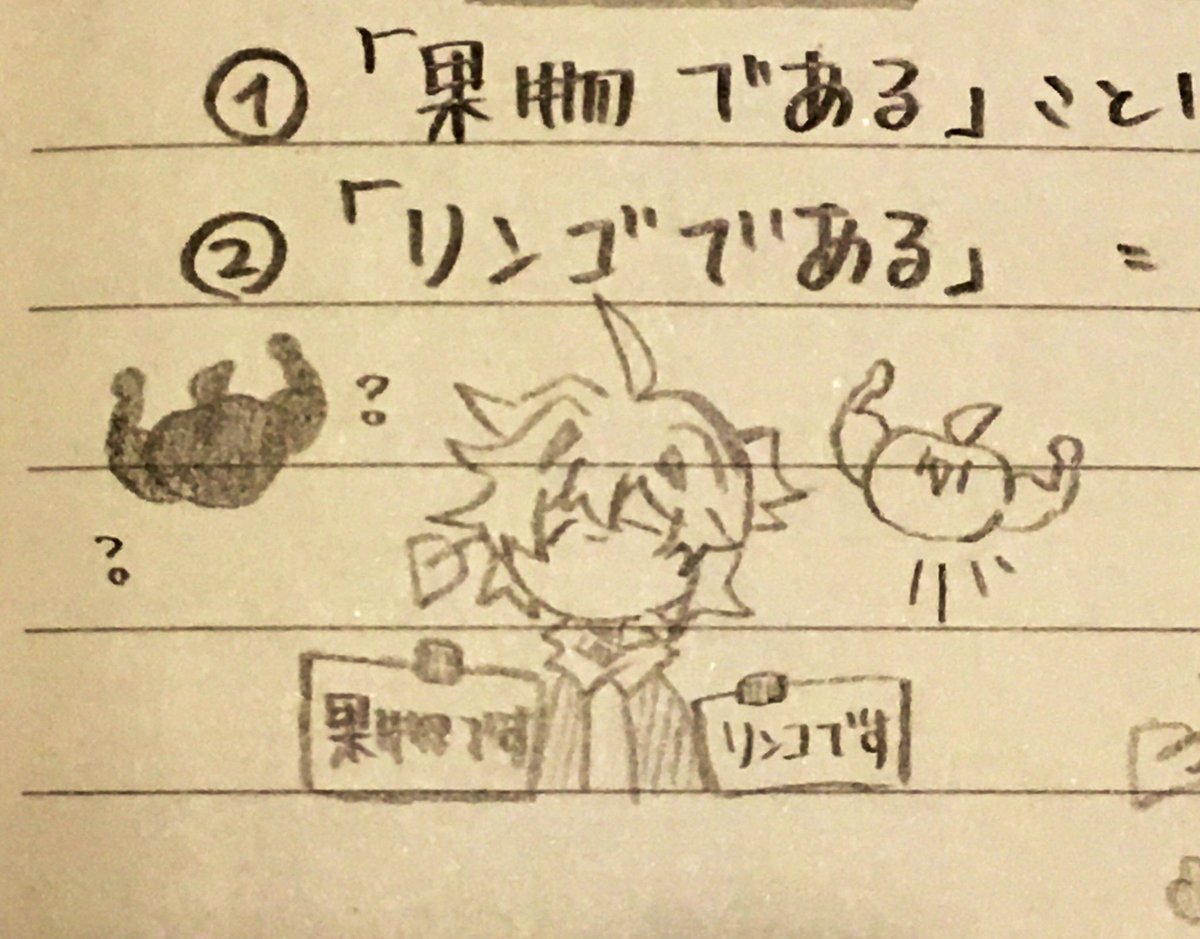 ①「果物である」こと
②「リンゴである」 =
?
?
果物です
リンゴです